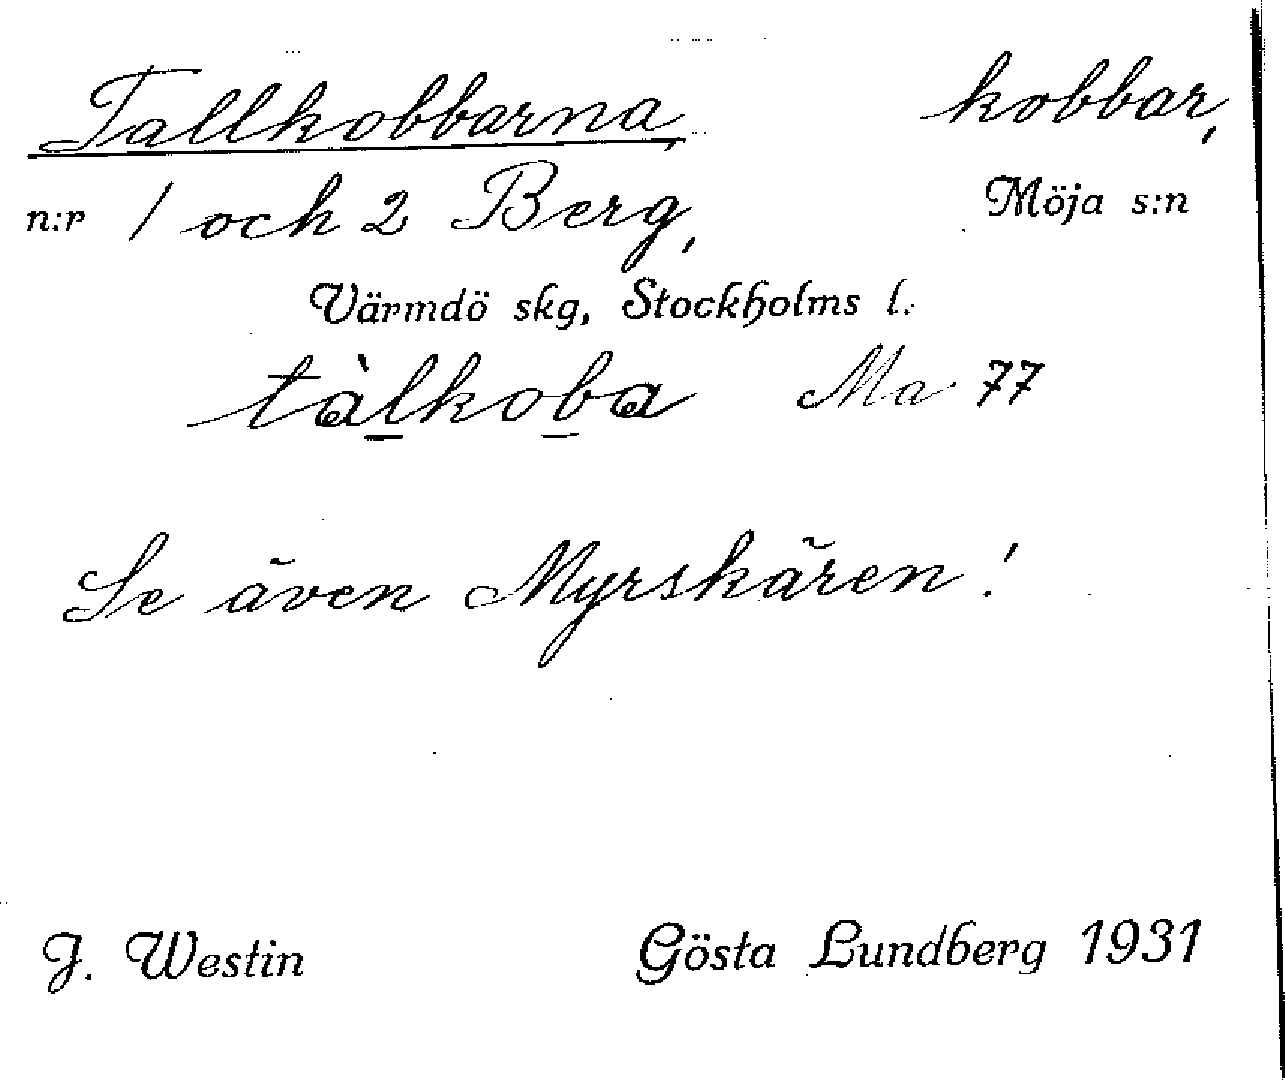 Tallkobbarna, kobbar,
n:r 1 och 2 Berg, Möja s:n
Värmdö skg, Stockholms l.
tàl̲kob̲a Ma 77
Se även Myrskären!
J. Westin Gösta Lundberg 1931